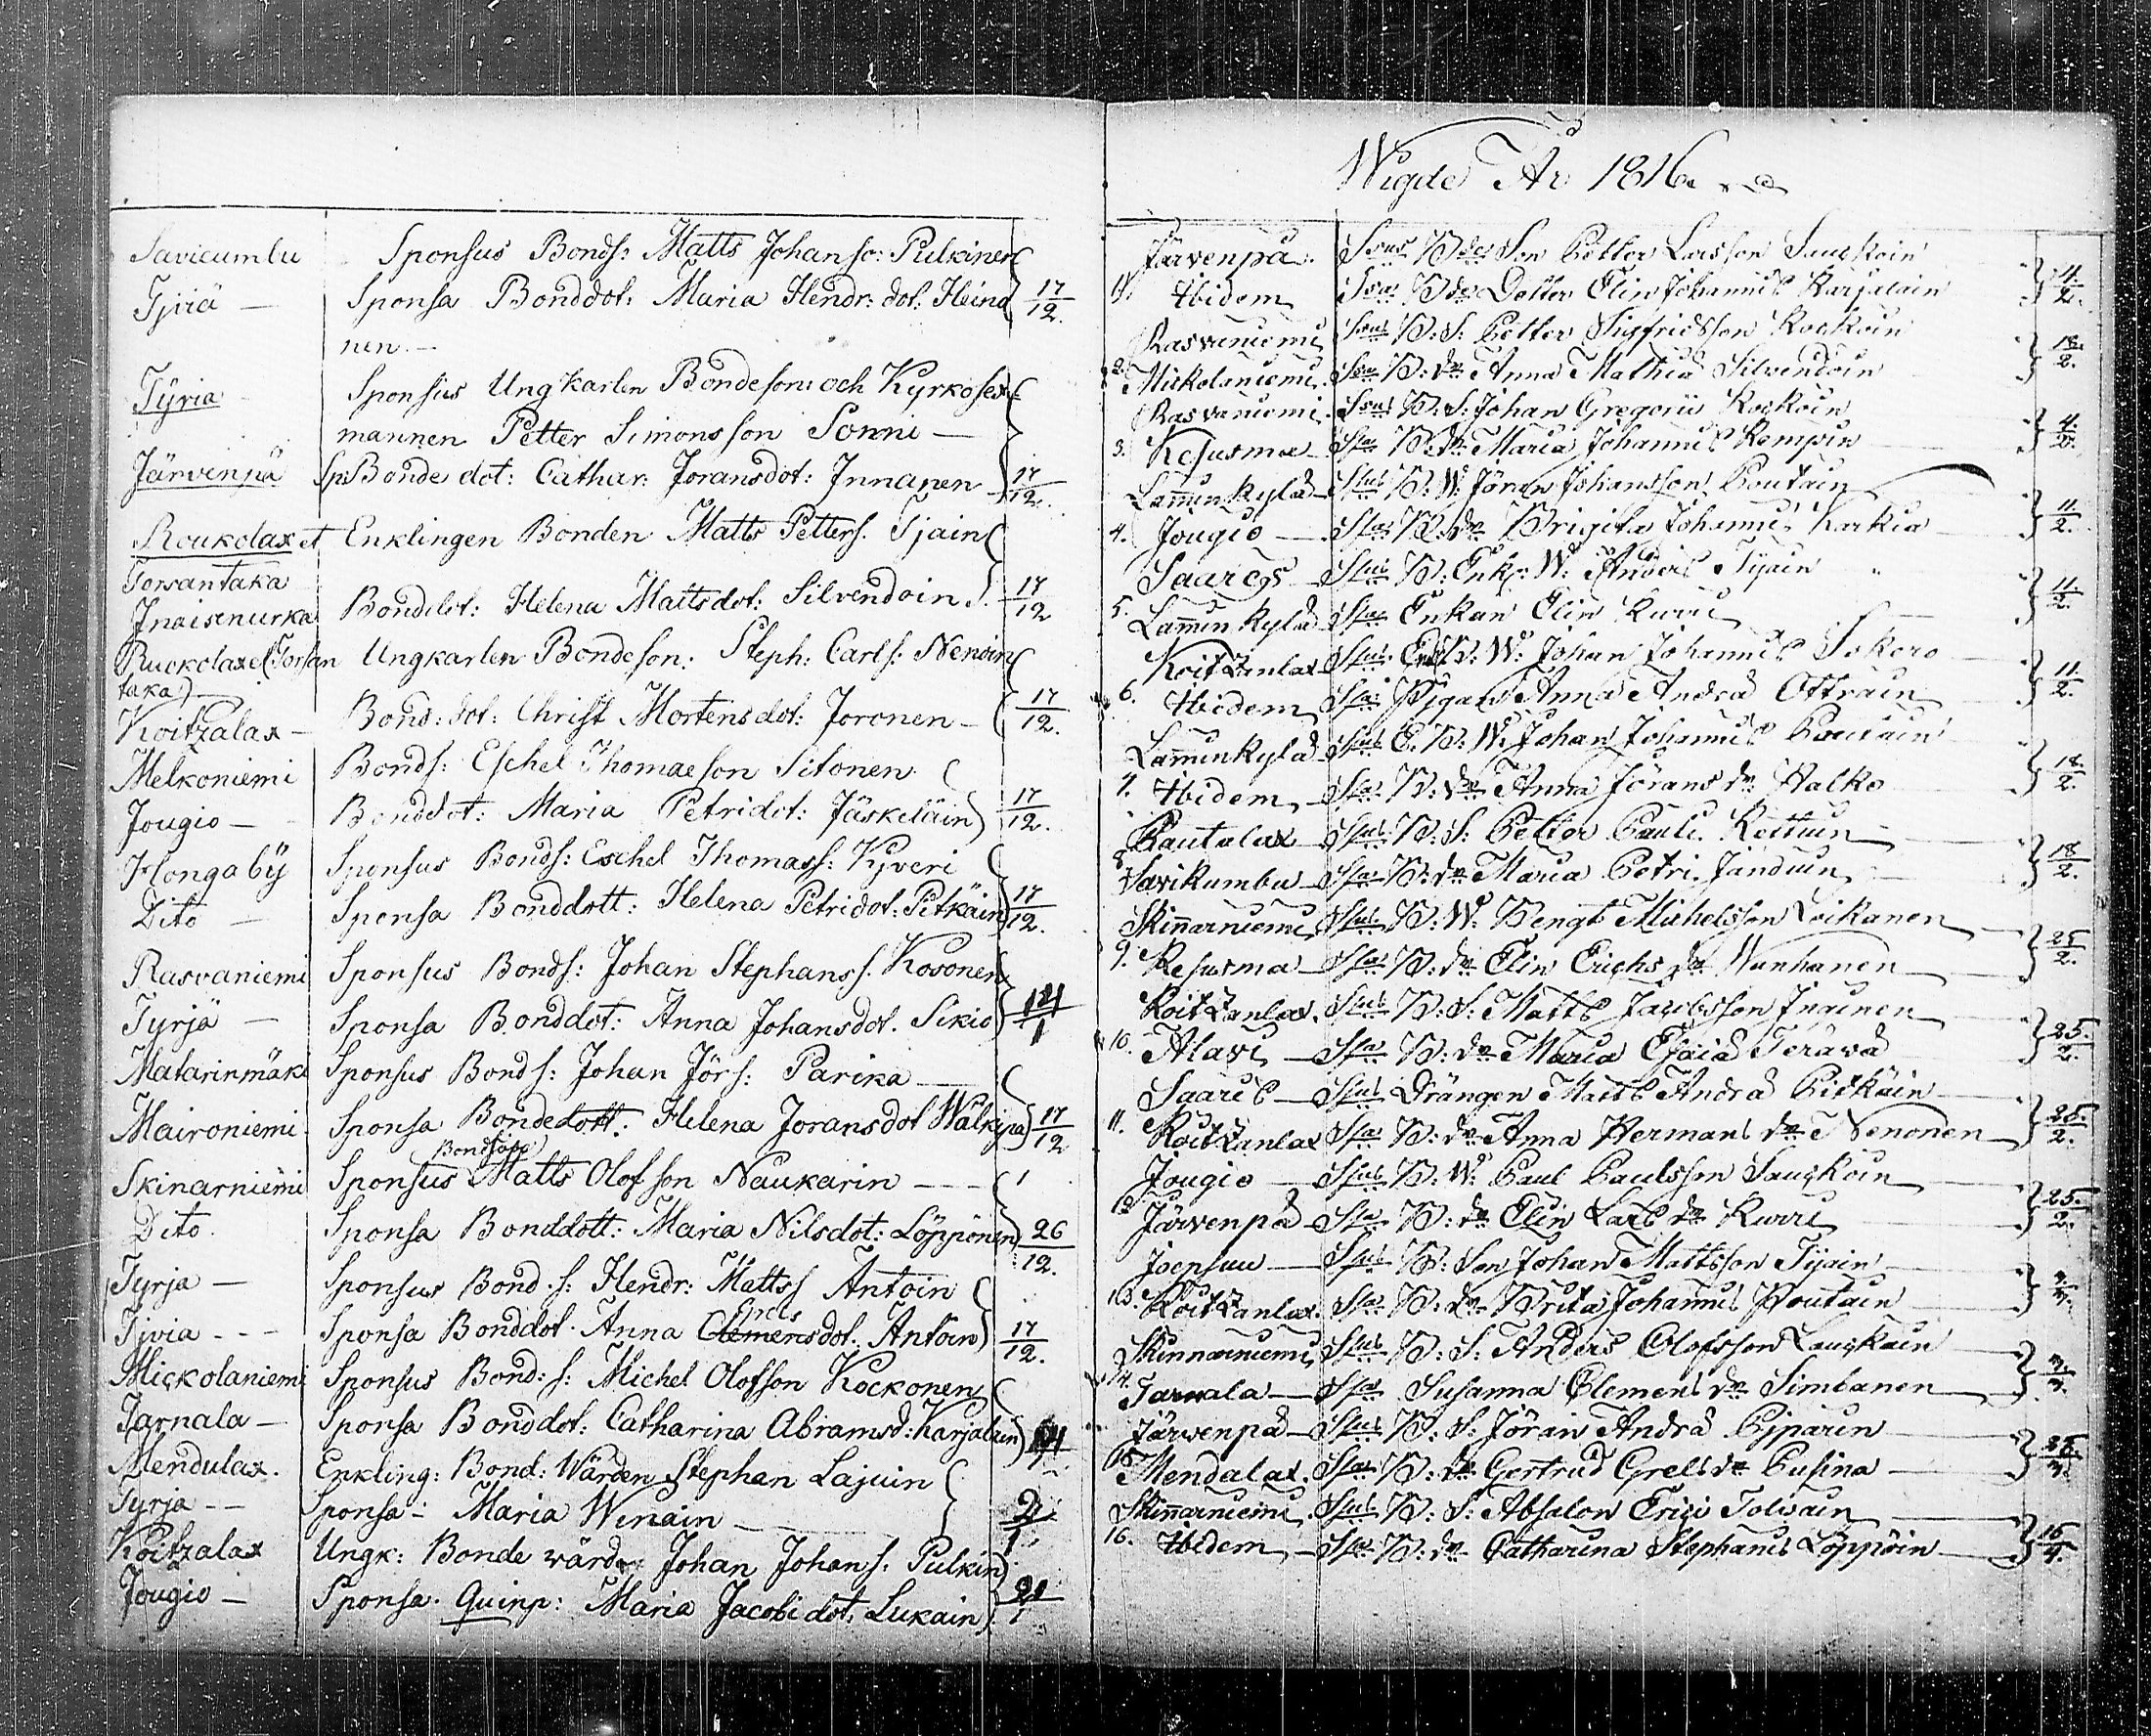 Savicumbu Sponsus Bonds: Matts Johanso: Pulkinen
Tjriä — Sponsa Bonddot: Maria Hendr: dot: Heina 17/12.
nen. —
Tÿria Sponsus Ungkarlen Bondeson och Kyrkosex
mannen Petter Simonsson Sonni —
Järvenpä Sp: Bonde dot: Cathar: Joransdot: Innanen 17/12.
Roukolax et Enklingen Bonden Matts Petters. Tjain
Torsantaka
Inaisenurka Bonddot: Helena Mattsdot: Silvendoin 17/12
Ruckolax (Torsan Ungkarlen Bondeson: Steph: Carls: Nenoin
taka) —
Koitzalax — Bond: dot: Christ Mortensdot: Joronen — 17/12.
Melkoniemi Bonds: Eschel Thomaeson Sitonen
Jougio — Bonddot: Maria Petridot: Jäskeläin 17/12.
Honga bÿ Sponsus Bonds: Eschel Thomass: Kyveri
Dito — Sponsa Bonddott: Helena Petridot: Pitkäin 17/12.
Rasvaniemi Sponsus Bonds: Johan Stephanss. Kosonen
Tyrjä — Sponsa Bonddot: Anna Johansdot. Sikio 14/1
Matarinmäki Sponsus Bonds: Johan Jörs: Parika —
Maironiemi Sponsa Bondedott: Helena Joransdot Wälkipa 17/12
Skinarniemi Sponsus Matts Olofson Naukarin - - - 1
Dito. Sponsa Bonddott: Maria Nilsdot: Löppönen 26/12.
Tyrja — Sponsus Bond.s: Hendr: Mattss Antoin
Tjvia - - - Sponsa Bonddot. Anna Clemensdot: Antoin 17/12.
Mickolaniemi Sponsus Bond: s: Michel Olofson Kockonen
Tarnala — Sponsa Bonddot: Catharina Abramsd: Karjalain
Mendulax. Enkling: Bond: Wärden Stephan Lajuin
Tyrja - - Sponsa - Maria Winain — 2/1
Koitzalax Ungk: Bonde wärden Johan Johans: Pulkin
Jougio — Sponsa. Quinp: Maria Jacobi dot: Lukain 21/1
Wigde År 1816
Järvenpä. Petter Larsson Sauckoin
1. Ibidem Dotter Elin Johannis Karjalain 4/2.
Rasvaniemi B: S: Petter Sigfridsson Kockoin
2. Mickolaniemi. B: dr Anna Mathiä Silvendoin 18/2.
Rasvaniemi. B: S: Johan Gregorii Kockoin
3. Kesusma B: dr Maria Johannis Kempin 4/2.
Laminkylä B: W: Jöran Johansson Poutain
4. Jougio — Spa B: dr Brigita Johannis Karkia 11/2.
Saares Spus B: Enkl: W: Anders Tijain
5. Laminkylä Spa Enkan Elin Kurri 11/2.
Koitzanlax Spus Johan Johannis Sokero
6. Ibidem Spa Pigan Anna Andrä Ottrain 11/2.
Laminkylä Spus E. B: W: Johan Johannis Poutain
7. Ibidem Spa B: dr Anna Jörans dr Halko 18/2.
Pautalax Spus B: S: Petter Pauli Kettuin
8. Savikumbu Spa B: dr Maria Petri Janduin 18/2.
Skinnarniemi Spus B: W: Bengt Michelsson Loikanen
9. Kesusma Spa B: dr Elin Erichs dr Wanhanen 25/2.
Koitzanlax Spus B: S: Matts Jacobsson Inainen
10. Alavi Spa B: dr Maria Esaiä Terävä 25/2.
Saaris Spus Drängen Matts Andrä Pitkäin
11. Koitzanlax Spa B: dr Anna Hermans dr Nenonen 25/2.
Jougio Spus B: W: Paul Paulsson Sauckoin
12. Järvenpä Spa B: dr Elin Lars dr Kurri 25/2.
Joensuu Spus B: Son Johan Mattsson Tijain
13. Koitzanlax. Spa B: dr Brita Johannis Poutain
Skinnarniemi Spus B: S: Anders Olofsson Lauckain
14. Tarnala Spa Susanna Clemens dr Simbanen
Järvenpä Spus B: S: Jöran Andrä Pyparin
15. Mendalax. Spa B: dr Gertrud Grels dr Pusina
Skinnarniemi. Spus B: S: Absalon Erici Tolvain
16. Ibidem Spa B: dr Catharina Stephanis Löppöin